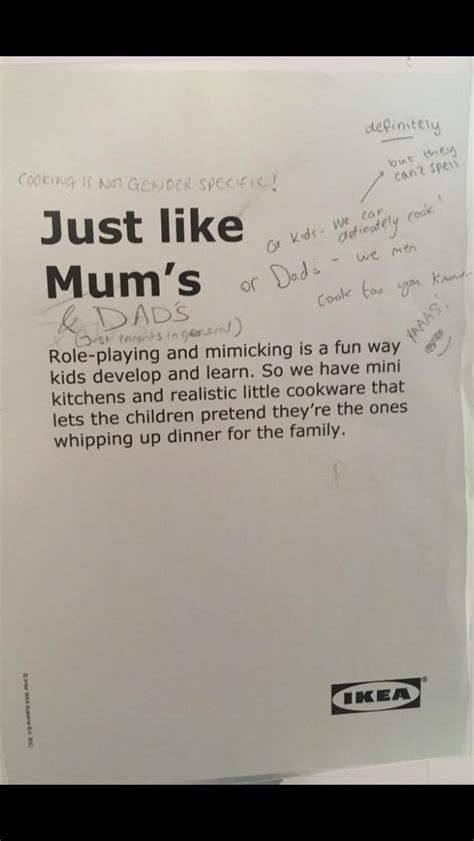 definitely
but they
can't spell
COOKING IS NOT GENDER SPECIFIC!
Just like
Mum's
Or kids - We can
definately cook!
or Dad's - we men
cook too you know...
& DAD'S
(Just parents in general)
YAAAS!
Role-playing and mimicking is a fun way
kids develop and learn. So we have mini
kitchens and realistic little cookware that
lets the children pretend they're the ones
whipping up dinner for the family.
IKEA